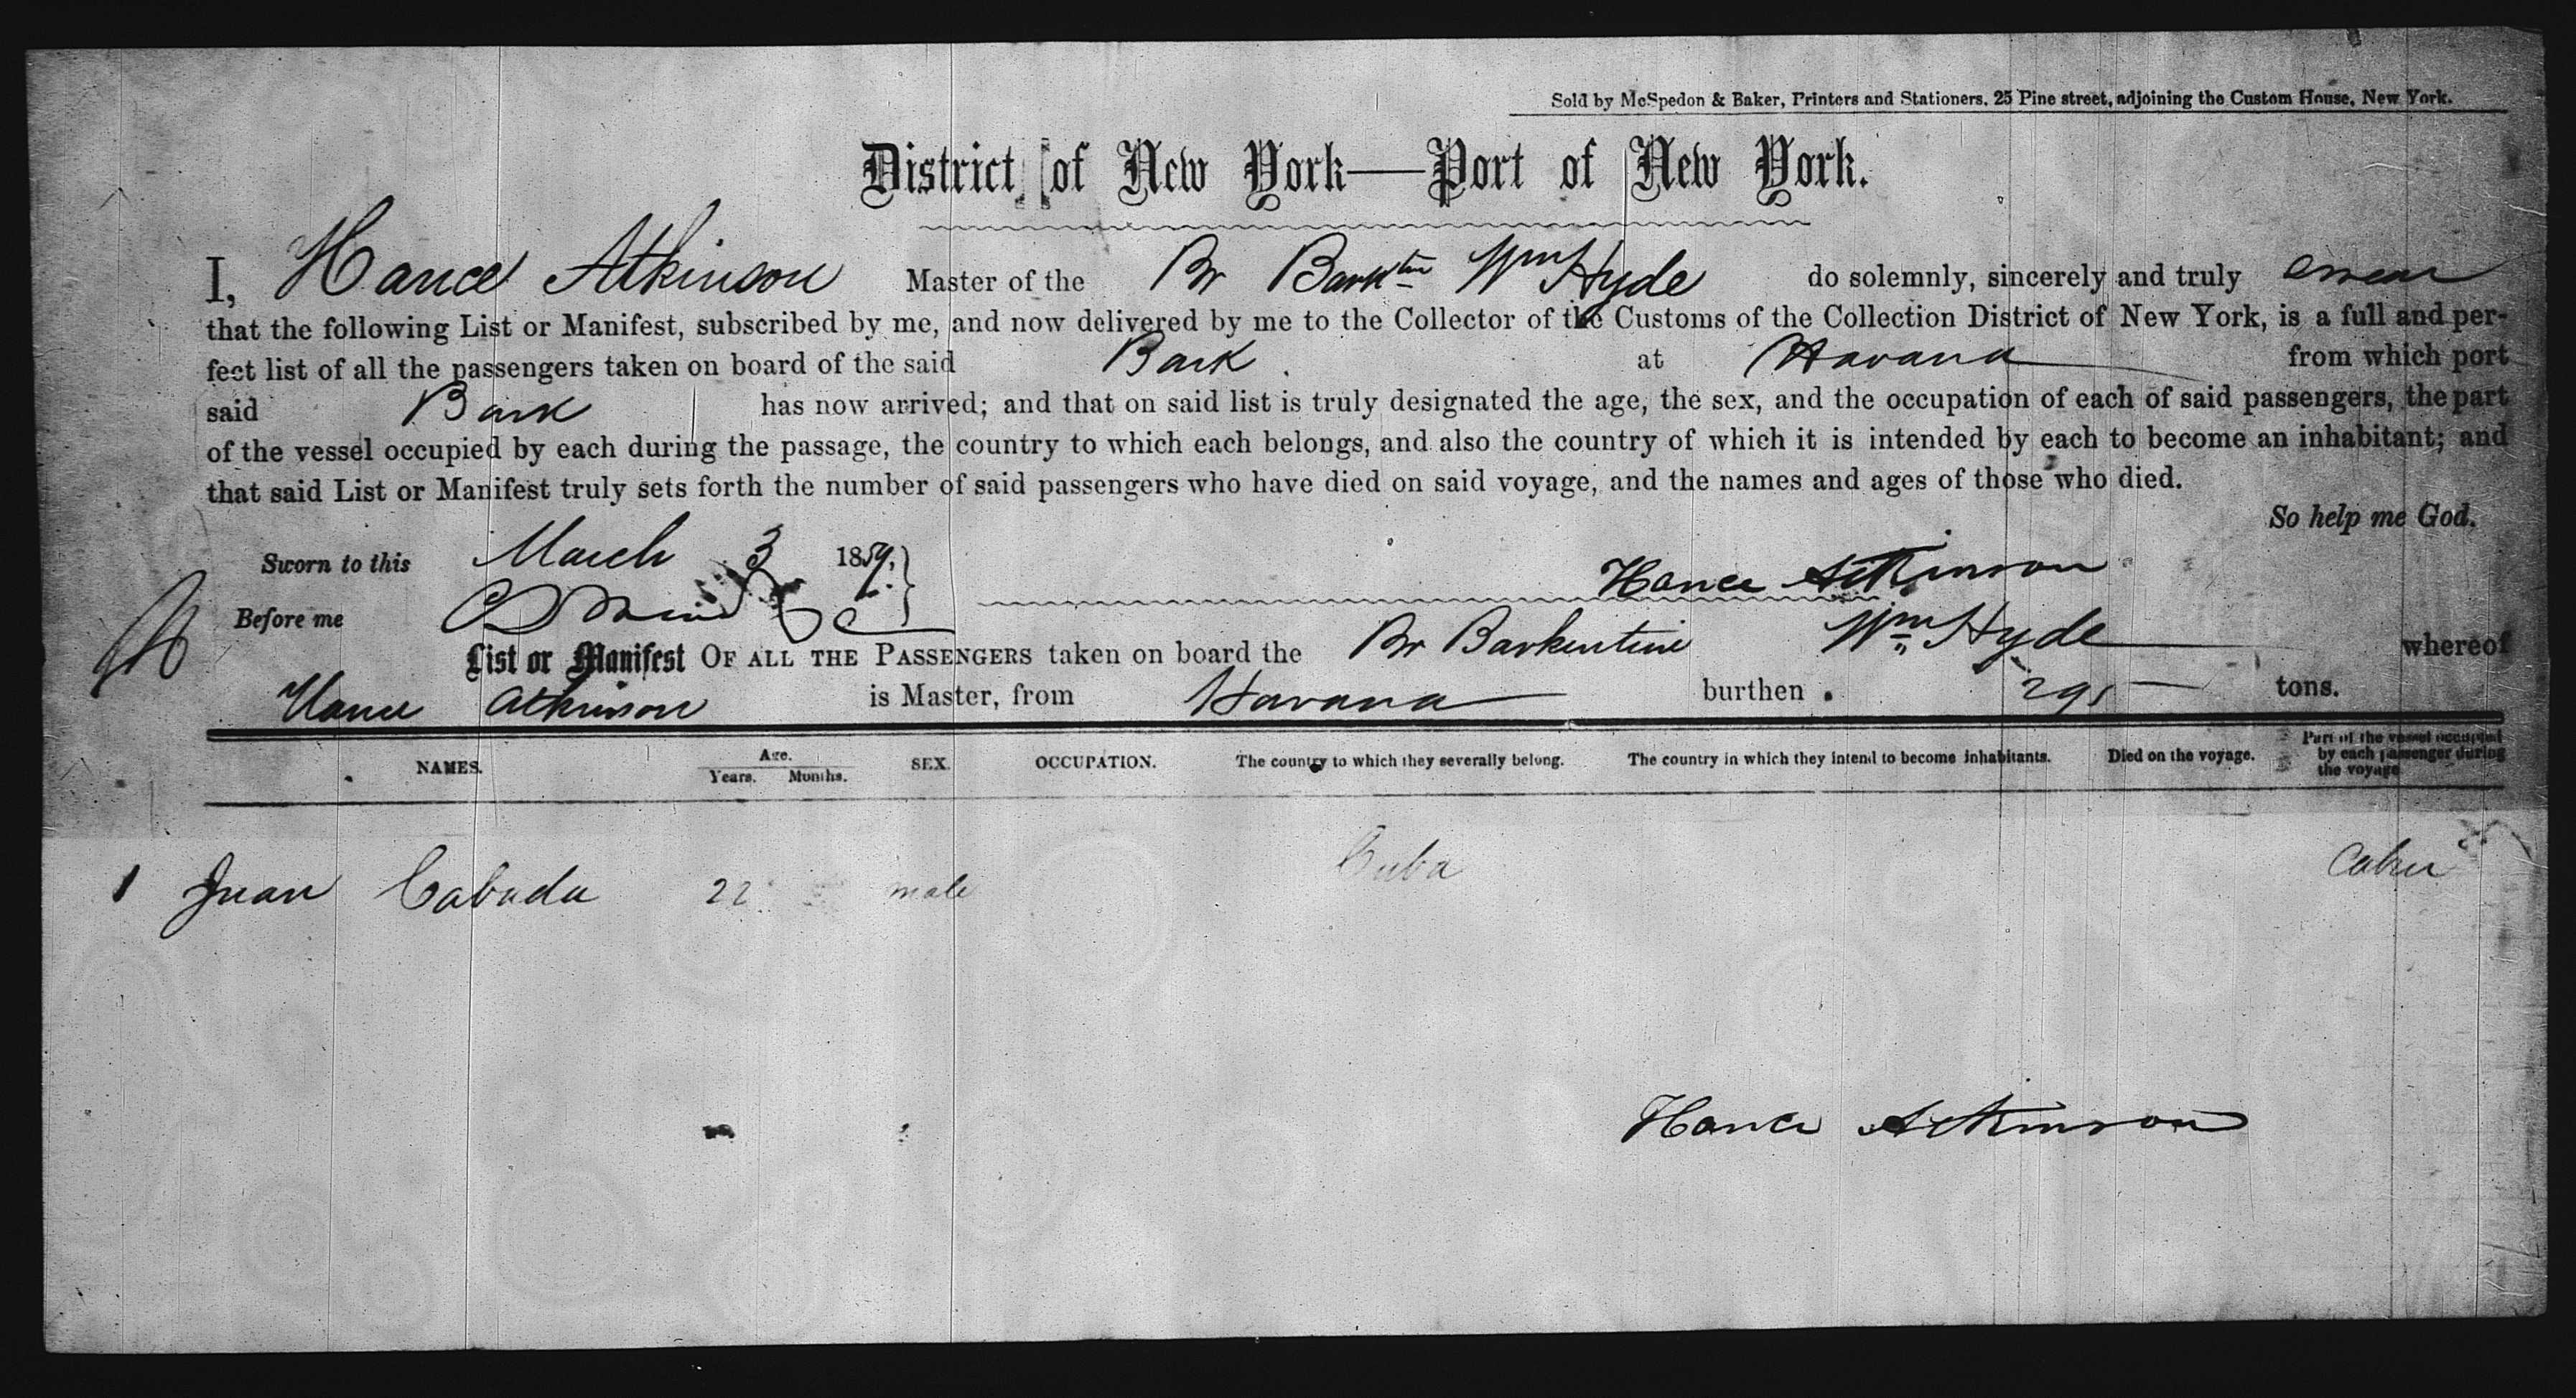 Sold by McSpedon & Baker, Printers and Stationers, 25 Pine street, adjoining the Custom House, New York.
District of New York—Port of New York.
I, Hance Atkinson Master of the Br Barktne Wm Hyde do solemnly, sincerely and truly swear
that the following List or Manifest, subscribed by me, and now delivered by me to the Collector of the Customs of the Collection District of New York, is a full and per-
fect list of all the passengers taken on board of the said Bark at Havana from which port
said Bark has now arrived; and that on said list is truly designated the age, the sex, and the occupation of each of said passengers, the part
of the vessel occupied by each during the passage, the country to which each belongs, and also the country of which it is intended by each to become an inhabitant; and
that said List or Manifest truly sets forth the number of said passengers who have died on said voyage, and the names and ages of those who died.
So help me God.
Sworn to this March 3 1859,
Hance Atkinson
Before me
List or Manifest OF ALL THE PASSENGERS taken on board the Br Barkentine Wm Hyde whereof
Hance Atkinson is Master, from Havana burthen 295 tons.
NAMES. Age. Years. Months. SEX. OCCUPATION. The country to which they severally belong. The country in which they intend to become inhabitants. Died on the voyage. Part of the vessel occupied by each passenger during the voyage
1 Juan Cabada 22 male Cuba Cabin
Hance Atkinson